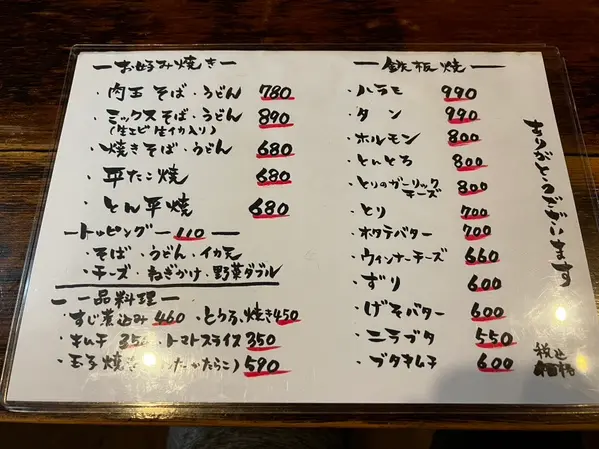 ー お好み焼き ー
・肉玉 そば・うどん 780
・ミックスそば・うどん 890
(生エビ 生イカ入り)
・焼きそば・うどん 680
・平たこ焼 680
・とん平焼 680
ー トッピング ー 110
・そば・うどん・イカ天
・チーズ・ねぎかけ・野菜ダブル
ー 一品料理 ー
・すじ煮込み 460 ・とろろ焼き 450
・キムチ 350 ・トマトスライス 350
・玉子焼き たかたらこ) 590
ー 鉄板焼 ー
・ハラミ 990
・タン 990
・ホルモン 800
・とんとろ 800
・とりのガーリック
チーズ 800
・とり 700
・ホタテバター 700
・ウィンナーチーズ 660
・ずり 600
・げそバター 600
・ニラブタ 550
・ブタキムチ 600
ありがとうございます
税込
価格